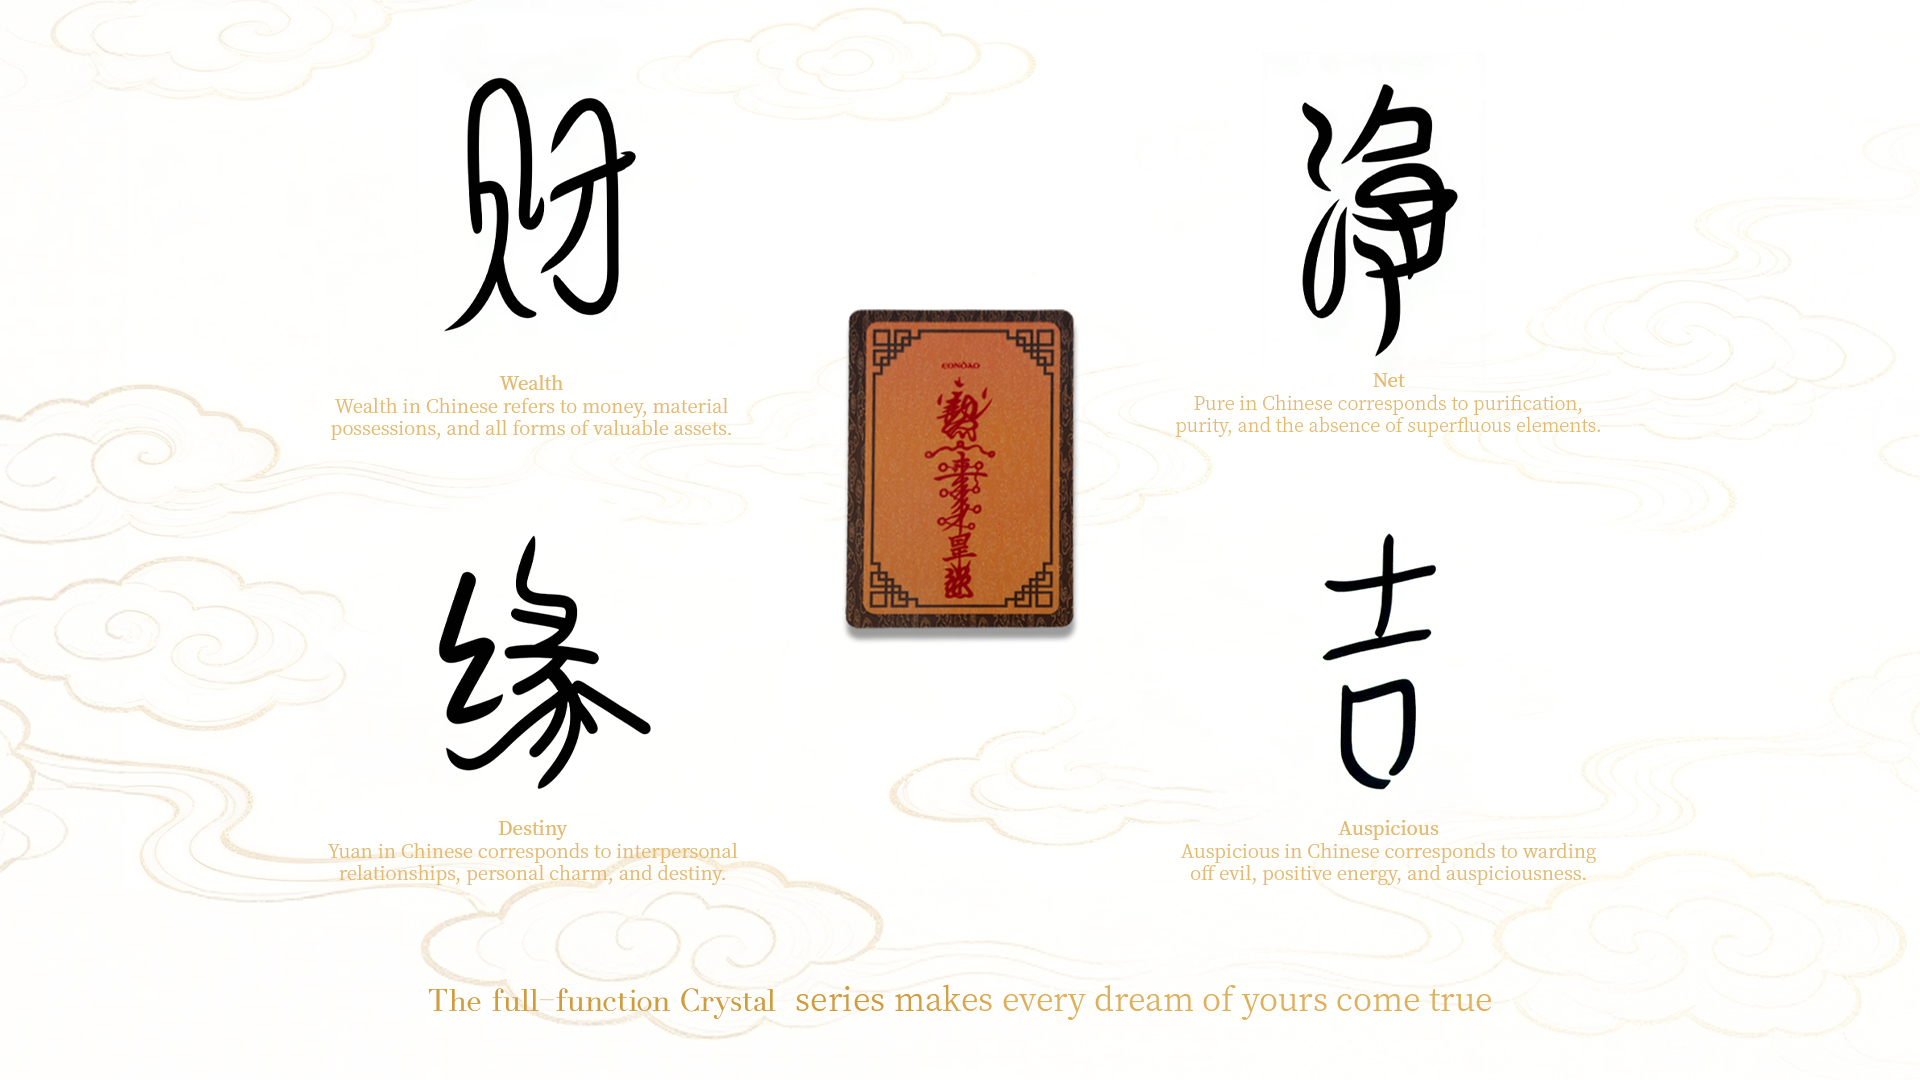 财
Wealth
Wealth in Chinese refers to money, material
possessions, and all forms of valuable assets.
净
Net
Pure in Chinese corresponds to purification,
purity, and the absence of superfluous elements.
EONDAO
缘
Destiny
Yuan in Chinese corresponds to interpersonal
relationships, personal charm, and destiny.
吉
Auspicious
Auspicious in Chinese corresponds to warding
off evil, positive energy, and auspiciousness.
The full-function Crystal series makes every dream of yours come true